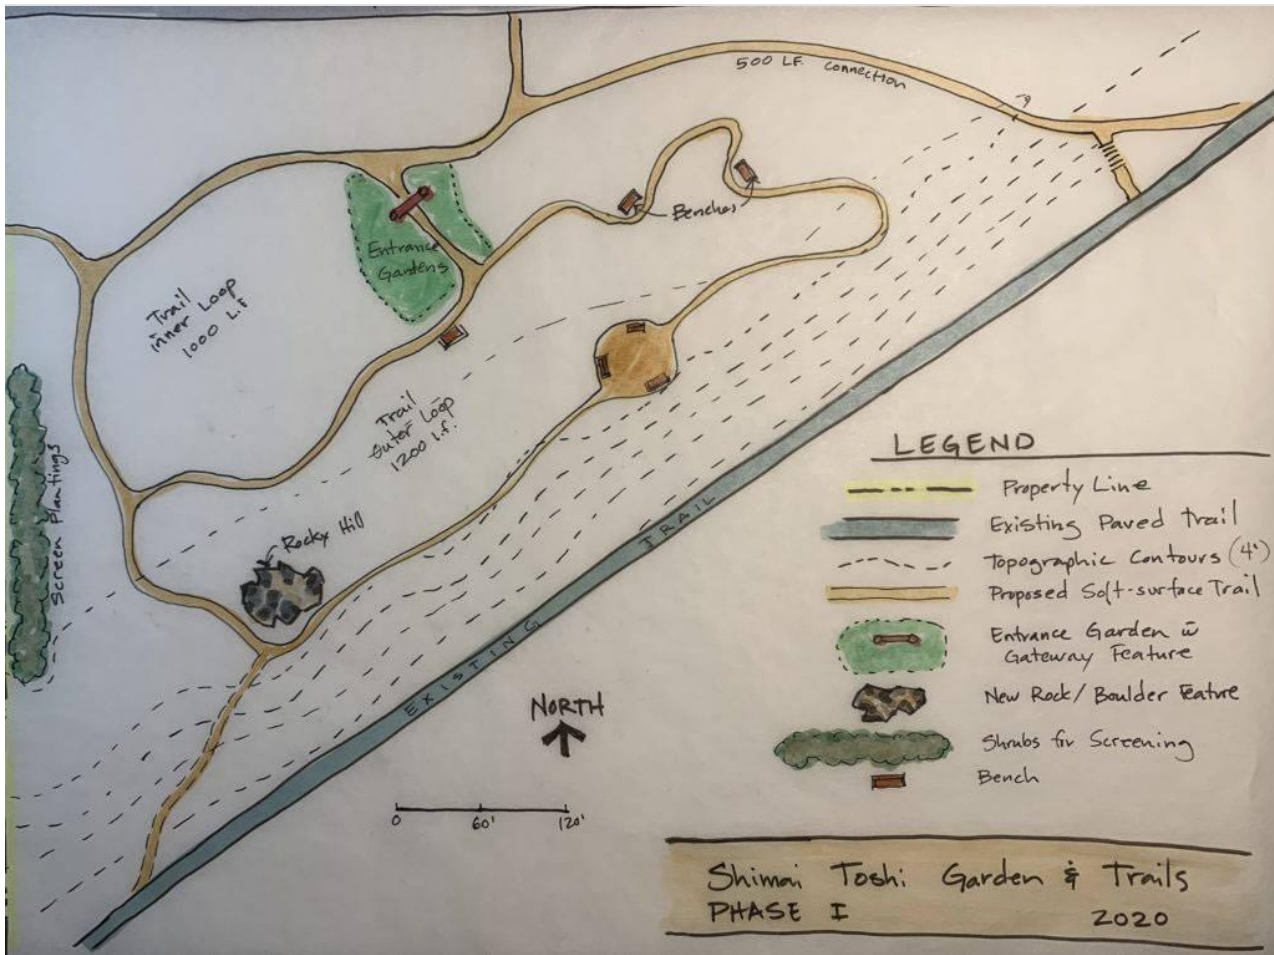 500 L.F. Connection
Benches
Entrance
Gardens
Trail
inner Loop
1000 L.F.
Trail
Outer Loop
1200 l.f.
Screen Plantings
Rocky Hill
EXISTING TRAIL
NORTH
0 60' 120'
LEGEND
Property Line
Existing Paved Trail
Topographic Contours (4')
Proposed Soft-surface Trail
Entrance Garden w
Gateway Feature
New Rock/Boulder Feature
Shrubs for Screening
Bench
Shimai Toshi Garden & Trails
PHASE I 2020